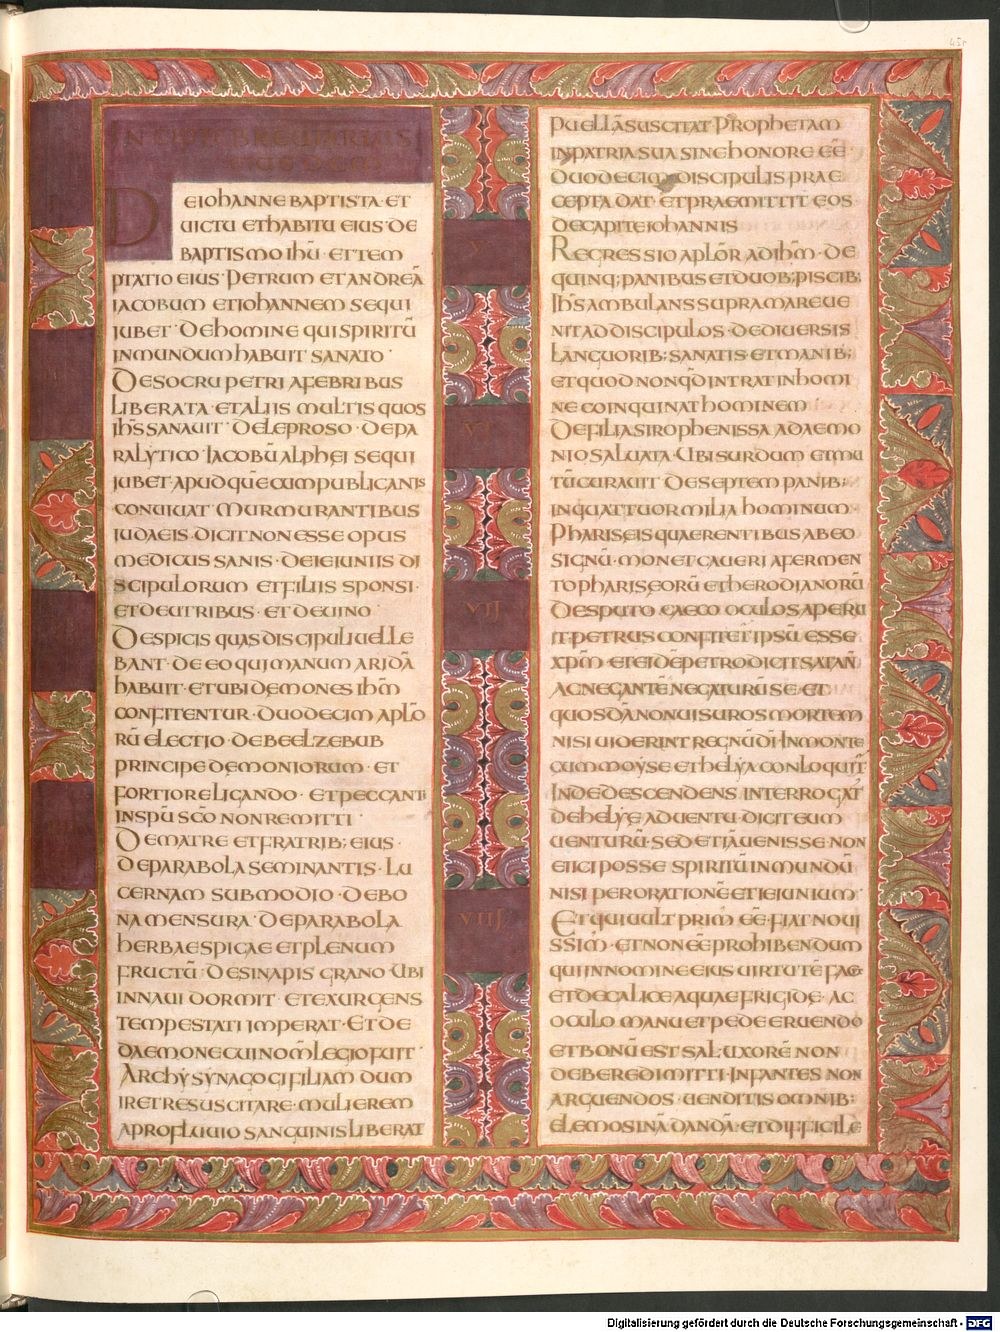 INCIPIT BREUIARIUS
EIUSDEM
DEIOHANNE BAPTISTA· ET
UICTU ETHABITU EIUS· DE
BAPTISMO IHŪ· ET TEM
PTATIO EIUS· PETRUM ET ANDREĀ
IACOBUM ETIOHANNEM SEQUI
IUBET· DE HOMINE QUI SPIRITŪ
INMUNDUM HABUIT SANATO·
DE SOCRU PETRI A FEBRIBUS
LIBERATA· ET ALIIS MULTIS QUOS
IHS SANAUIT· DE LEPROSO· DE PA
RALYTICO· IACOBŪ ALPHEI SEQUI
IUBET· APUD QUĒ CUM PUBLICANIS
CONUIUAT· MURMURANTIBUS
IUDAEIS· DICIT NON ESSE OPUS
MEDICUS SANIS· DE IEIUNIIS DI
SCIPULORUM ET FILIIS SPONSI·
ET DE UTRIBUS· ET DE UINO·
DE SPICIS QUAS DISCIPULI UELLE
BANT· DE EO QUI MANUM ARIDĀ
HABUIT· ET UBI DEMONES IHM̄
CONFITENTUR· DUODECIM APLO
RŪ ELECTIO· DE BEELZEBUB
PRINCIPE DEMONIORUM· ET
FORTIORE LIGANDO· ET PECCANT
IN SPŪ SCŌ NON REMITTI·
DE MATRE ET FRATRIB; EIUS·
DE PARABOLA SEMINANTIS· LU
CERNAM SUB MODIO· DE BO
NA MENSURA· DE PARABOLA
HERBAE SPICAE ET PLENUM
FRUCTŪ· DE SINAPIS GRANO· UBI
IN NAUI DORMIT· ET EXURGENS
TEMPESTATI IMPERAT· ET DE
DAEMONE CUI NOM̄ LEGIO FUIT·
ARCHYSYNAGOGI FILIAM DUM
IRET RESUSCITARE· MULIEREM
A PROFLUUIO SANGUINIS LIBERAT
V
VI
VII
VIII
PUELLĀ SUSCITAT· PROPHETAM
IN PATRIA SUA SINE HONORE EĒ·
DUODECIM DISCIPULIS PRAE
CEPTA DAT· ET PRAEMITTIT EOS·
DE CAPITE IOHANNIS
REGRESSIO APLOR̄ AD IHM̄· DE
QUINQ; PANIBUS ET DUOB; PISCIB;
IHS AMBULANS SUPRA MARE UE
NIT AD DISCIPULOS· DE DIUERSIS
LANGUORIB; SANATIS· ET MANIB;
ET QUOD NON QD̄ INTRAT IN HOMI
NE COINQUINAT HOMINEM
DE FILIA SIROPHENISSA A DAEMO
NIO SALUATA· UBI SURDUM ET MU
TŪ CURAUIT· DE SEPTEM PANIB;
IN QUATTUOR MILIA HOMINUM·
PHARISEIS QUAERENTIBUS AB EO
SIGNŪ· MONET CAUERI A FERMEN
TO PHARISEORŪ ET HERODIANORŪ
DE SPUTO CAECO OCULOS APERU
IT· PETRUS CONFITET̄ IPSŪ ESSE
XPM̄· ET EIDĒ PETRO DICIT SATAN̄
AC NEGANTĒ NEGATURŪ SE· ET
QUOSDĀ NON UISUROS MORTEM
NISI UIDERINT REGNŪ DĪ· IN MONTE
CUM MOYSE ET HELYA CONLOQUIT̄
INDE DESCENDENS INTERROGAT̄
DE HELYE ADUENTU· DICIT EUM
UENTURŪ· SED ET IĀ UENISSE· NON
EIICI POSSE SPIRITŪ INMUNDŪ
NISI PER ORATIONĒ ET IEIUNIUM·
ET QUI UULT PRIM̄ EĒ· FIAT NOUI
SSIM̄· ET NON EĒ PROHIBENDUM
QUI IN NOMINE EIUS UIRTUTĒ FAC̄
ET DE CALICE AQUAE FRIGIDE· AC
OCULO MANU ET PEDE ERUENDO
ET BONŪ EST SAL· UXORĒ NON
DEBERE DIMITTI· INFANTES NON
ARGUENDOS· UENDITIS OMNIB;
ELEMOSINĀ DANDĀ· ET DIFFICILE
Digitalisierung gefördert durch die Deutsche Forschungsgemeinschaft - DFG